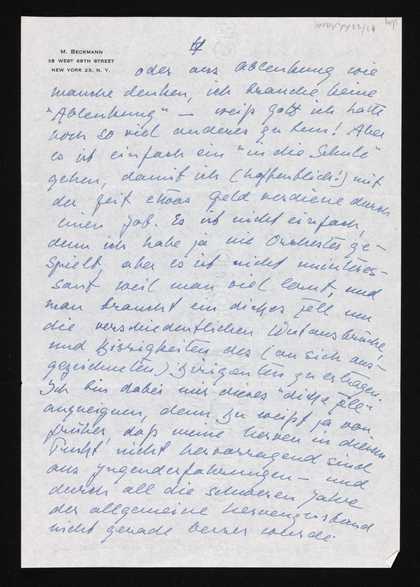 M. BECKMANN
38 WEST 69TH STREET
NEW YORK 23, N. Y.
oder aus Ablenkung wie
manche denken, ich brauche keine
"Ablenkung" – weiß gott ich hätte
noch so viel anderes zu tun! Aber
es ist einfach ein "in die Schule"
gehen, damit ich (hoffentlich!) mit
der Zeit etwas Geld verdiene durch
einen job. Es ist nicht einfach,
denn ich habe ja nie Orchester ge-
spielt, aber es ist nicht uninteres-
sant weil man viel lernt, und
man braucht ein dickes Fell um
die verschiedentlichen Wutausbrüche
und Bissigkeiten des (an sich aus-
gezeichneten) Dirigenten zu ertragen.
Ich bin dabei mir dieses "dicke Fell"
anzueignen, denn Du weißt ja von
früher, daß meine Nerven in diesem
Punkt nicht hervorragend sind
aus Jugenderfahrungen – und
durch all die schweren Jahre
der allgemeine Nervenzustand
nicht gerade besser wurde